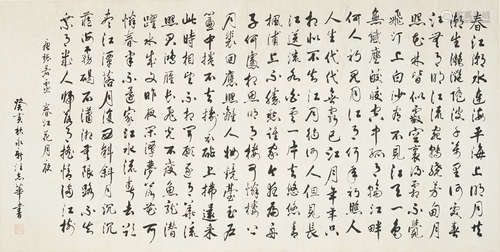 春江潮水連海平海上明月共
潮生灩灩隨波千萬里何處春
江無月明江流宛轉繞芳甸月
照花林皆似霰空裏流霜不覺
飛汀上白沙看不見江天一色
無纖塵皎皎空中孤月輪江畔
何人初見月江月何年初照
人人生代代無窮已江月年年
只相似不知江月待何人但見長
江送流水白雲一片去悠悠青
楓浦上不勝愁誰家今夜扁舟
子何處相思明月樓可憐樓上
月裴回應照離人妝鏡臺玉戶
簾中捲不去搗衣砧上拂還來
此時相望不相聞願逐月華流
照君鴻雁長飛光不度魚龍潛
躍水成文昨夜閒潭夢落花可
憐春半不還家江水流春去欲盡
江潭落月復西斜斜月沉沉
藏海霧碣石瀟湘無限路不知
乘月幾人歸落月搖情滿江樹
唐張若虛春江花月夜
癸亥秋永新汪志華書